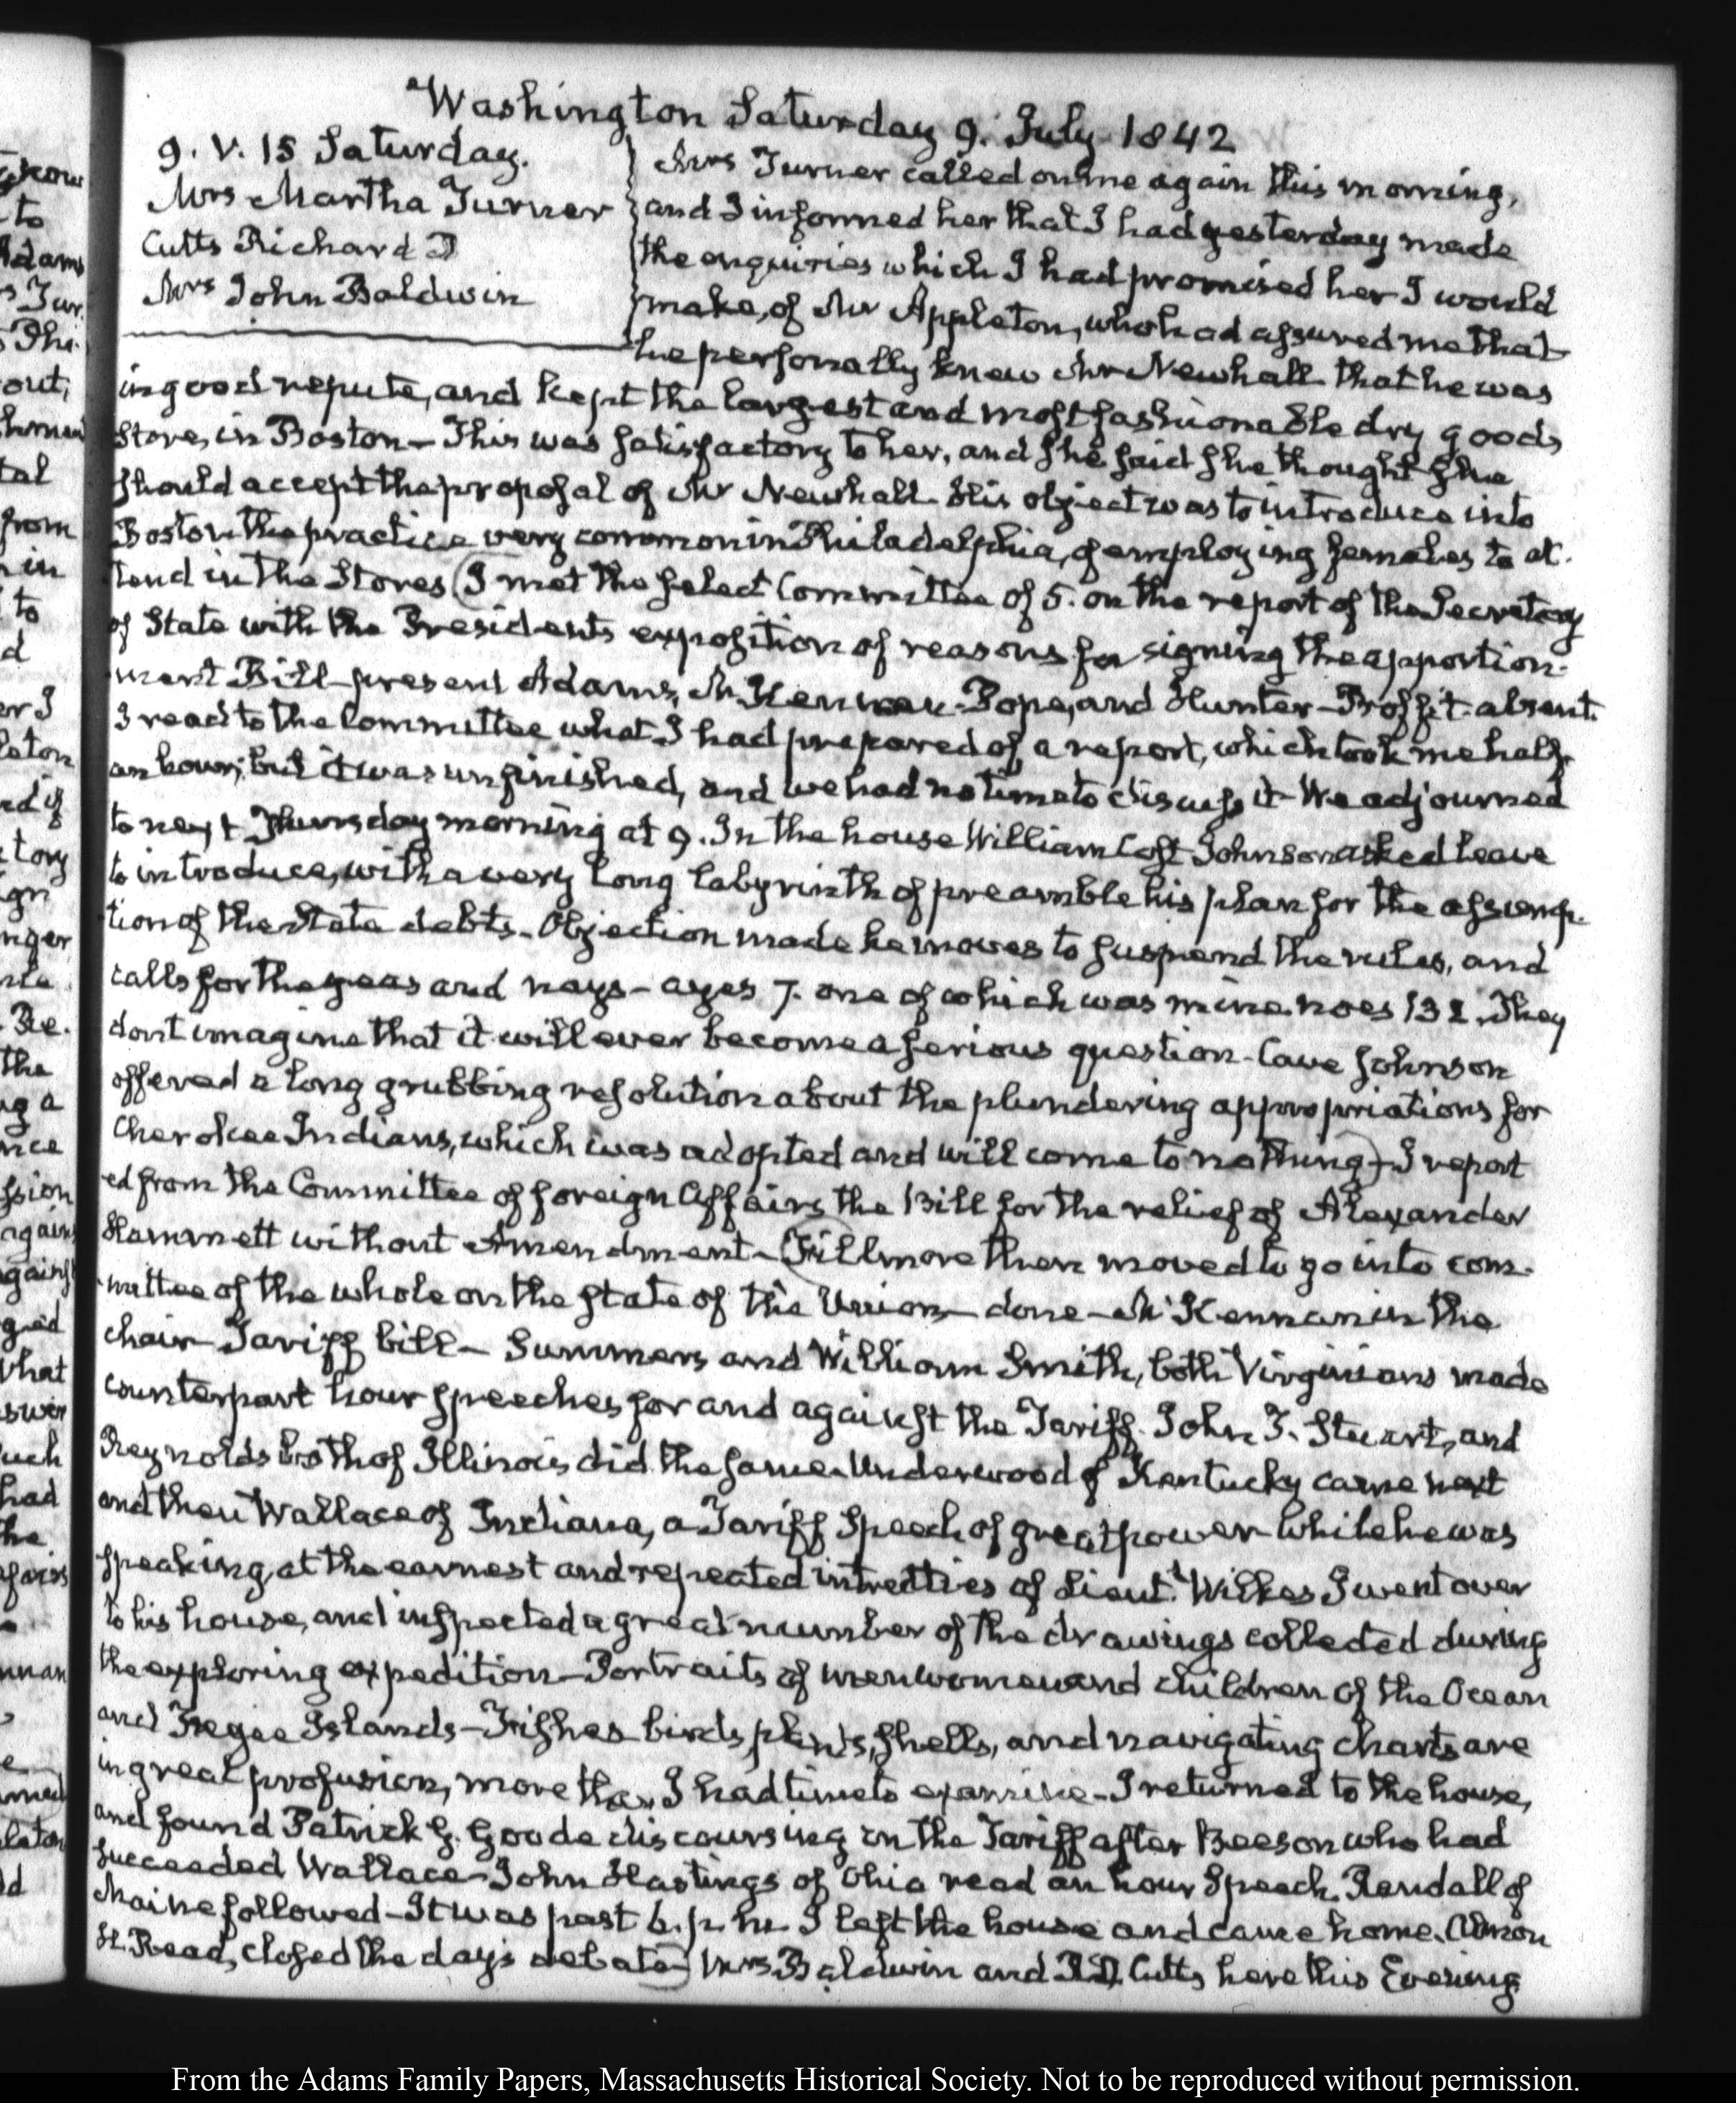 Washington Saturday 9. July 1842
9. V. 15 Saturday.
Mrs Martha Turner
Cutts Richard D
Mrs John Baldwin
Mrs Turner called on me again this morning,
and I informed her that I had yesterday made
the enquiries which I had promised her I would
make, of Mr Appleton, who had assured me that
he personally knew Mr Newhall that he was
in good repute, and kept the largest and most fashionable dry goods
Store, in Boston – This was satisfactory to her, and she said she thought she
should accept the proposal of Mr Newhall. His object was to introduce into
Boston the practice very common in Philadelphia, of employing females to at-
tend in the Stores (I met the select Committee of 5. on the report of the Secretary
of State with the Presidents exposition of reasons for signing the apportion-
ment Bill – present Adams, McKennan Pope, and Hunter – Proffit absent.
I read to the Committee what I had prepared of, a report, which took me half
an hour; but it was unfinished, and we had no time to discuss it – We adjourned
to next Thursday morning at 9. In the house William Cost Johnson asked leave
to introduce, with a very long labyrinth of preamble his plan for the assump-
tion of the State debts – Objection made he moves to suspend the rules, and
calls for the yeas and nays – ayes 7. one of which was mine. noes 132. They
dont imagine that it will ever become a serious question – Cave Johnson
offered a long grubbing resolution about the plundering appropriations for
Cherokee Indians, which was adopted and will come to nothing) – I report
ed from the Committee of foreign Affairs the Bill for the relief of Alexander
Hammett without Amendment – (Fillmore then moved to go into com-
mittee of the whole on the state of the Union – done – McKennan in the
chair – Tariff bill – Summers and William Smith, both Virginians made
counterpart hour speeches for and against the Tariff. John T. Stuart, and
Reynolds both of Illinois did the same. Underwood of Kentucky came next
and then Wallace of Indiana, a Tariff Speech of great power. While he was
speaking, at the earnest and repeated intreaties of Lieut. Wilkes I went over
to his house, and inspected a great number of the drawings collected during
the exploring expedition – Portraits of men women and children of the Ocean
and Fegee Islands – Fishes birds, plants, shells, and navigating charts are
in great profusion, more than I had time to examine – I returned to the house,
and found Patrick G. Goode discoursing on the Tariff after Beeson who had
succeeded Wallace – John Hastings of Ohio read an hour Speech. Randall of
Maine followed – It was past 6. p. m. I left the house and came home. Almon
H. Read, closed the day's debate) Mrs Baldwin and R.D. Cutts here this Evening
From the Adams Family Papers, Massachusetts Historical Society. Not to be reproduced without permission.